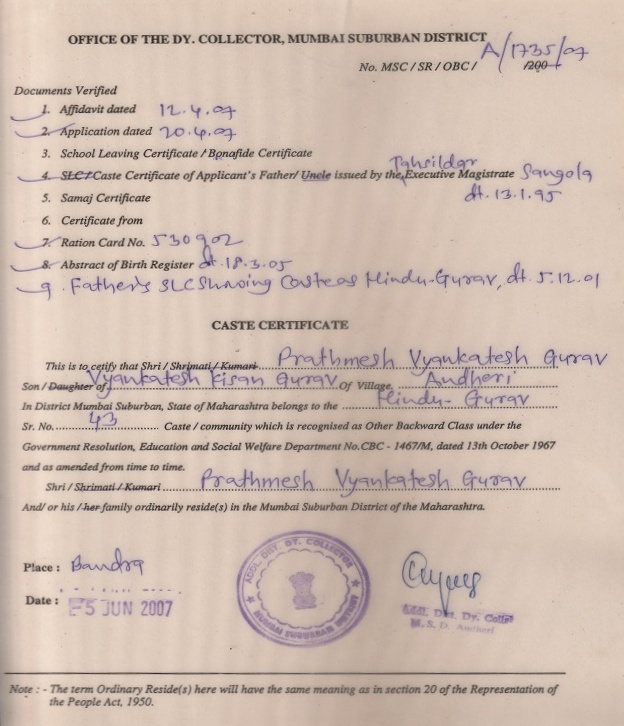 OFFICE OF THE DY. COLLECTOR, MUMBAI SUBURBAN DISTRICT
No. MSC / SR / OBC / A/1735/07 /200
Documents Verified
1. Affidavit dated 12.4.07
2. Application dated 20.4.07
3. School Leaving Certificate / Bonafide Certificate
Tahsildar
4. SLC/Caste Certificate of Applicant's Father/ Uncle issued by the Executive Magistrate Sangola
dt. 13.1.95
5. Samaj Certificate
6. Certificate from
7. Ration Card No. 530902
8. Abstract of Birth Register dt. 18.3.05
9. Father's SLC Showing Caste as Hindu-Gurav, dt. 5.12.01
CASTE CERTIFICATE
This is to cetify that Shri / Shrimati / Kumari Prathmesh Vyankatesh Gurav
Son / Daughter of Vyankatesh Kisan Gurav Of Village. Andheri
In District Mumbai Suburban, State of Maharashtra belongs to the Hindu-Gurav
Sr. No. 43 Caste / community which is recognised as Other Backward Class under the
Government Resolution, Education and Social Welfare Department No.CBC - 1467/M, dated 13th October 1967
and as amended from time to time.
Shri / Shrimati / Kumari Prathmesh Vyankatesh Gurav
And/ or his / her family ordinarily reside(s) in the Mumbai Suburban District of the Maharashtra.
Place : Bandra
Date : 5 JUN 2007
ADDL. DIST. DY. COLLECTOR
MUMBAI SUBURBAN DISTRICT
Addl. Dist. Dy. Colle
M. S. D. Andheri
Note : - The term Ordinary Reside(s) here will have the same meaning as in section 20 of the Representation of
the People Act, 1950.